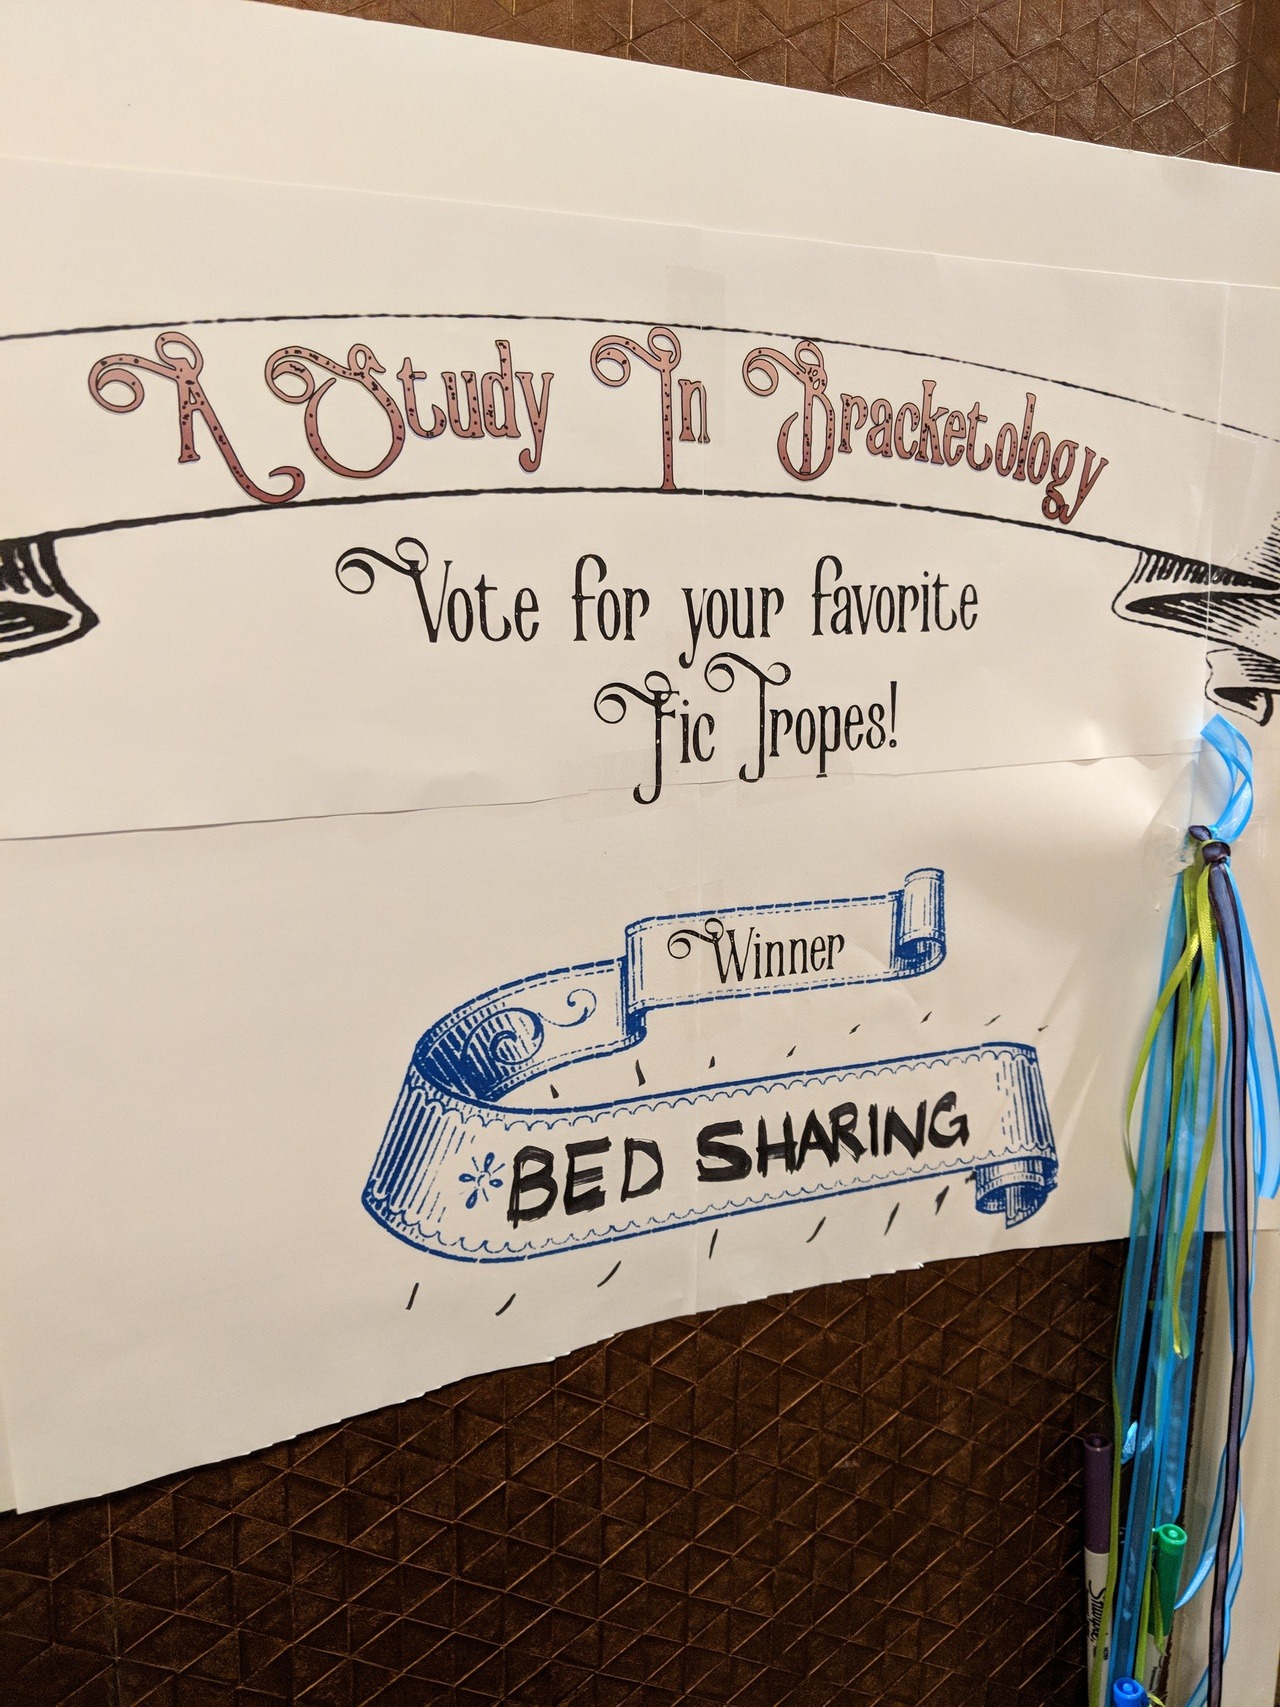 A Study In Bracketology
Vote for your favorite
Fic Tropes!
Winner
BED SHARING
Sharpie